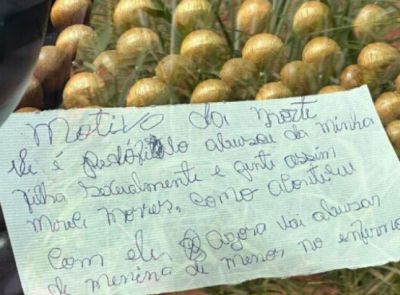 Motivo da morte
ele é pedófilo abusou da minha
filha sexualmente e gente assim
Merece morrer. como aconteceu
com ele agora vai abusar
de menina de menor no inferno